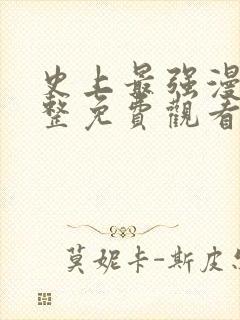 史上最强漫
整免費觀看
莫妮卡-斯皮